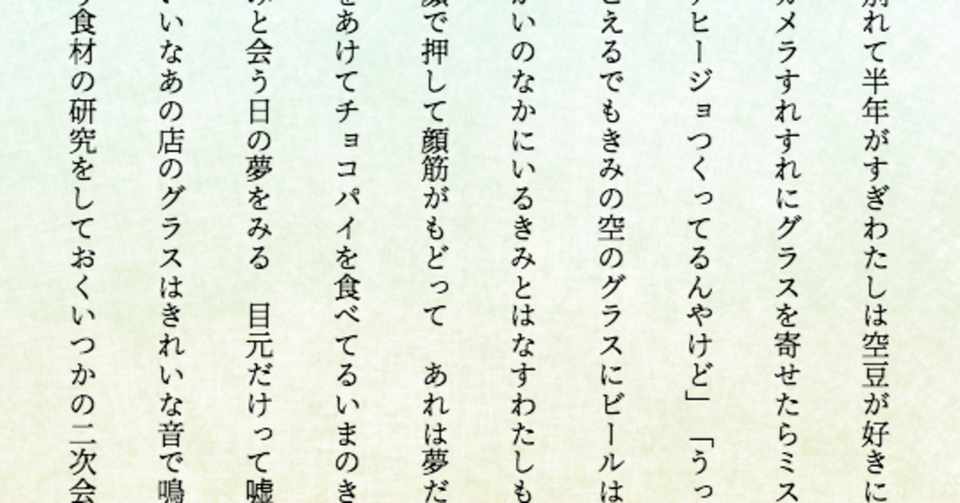 れて半年がすぎわたしは空豆が好きに
メラすれすれにグラスを寄せたらミス
ヒージョつくってるんやけど」「うっ
えるでもきみの空のグラスにビールは
いのなかにいるきみとはなすわたしも
で押して顔筋がもどって　あれは夢だ
あけてチョコパイを食べてるいまのき
と会う日の夢をみる　目元だけって嘘
いなあの店のグラスはきれいな音で鳴
食材の研究をしておくいつかの二次会